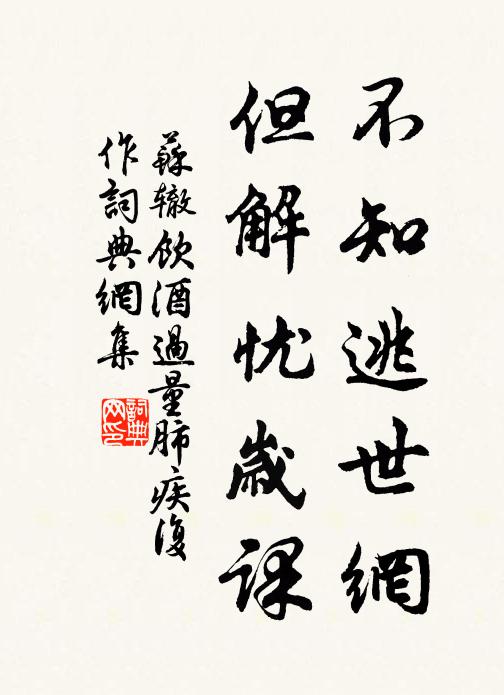 不知逃世網
但解忧歲課
蘇辙飲酒過量肺疾復
作詞典網集
詞典
网印